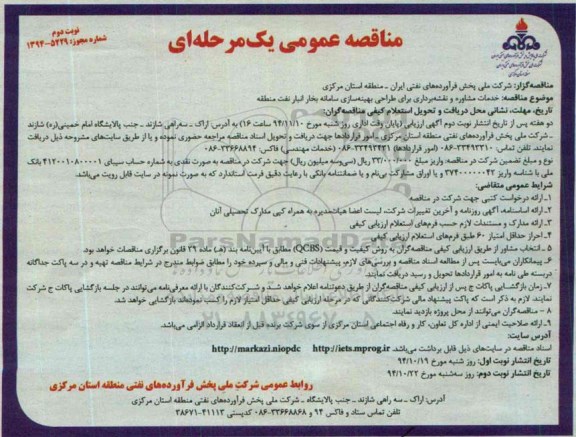 نوبت دوم
شماره مجوز: ۵۲۲۹-۱۳۹۴
مناقصه عمومی یک‌مرحله‌ای
مناقصه‌گزار: شرکت ملی پخش فرآورده‌های نفتی ایران ـ منطقه استان مرکزی
موضوع مناقصه: خدمات مشاوره و نقشه‌برداری برای طراحی بهینه‌سازی سامانه بخار انبار نفت منطقه
تاریخ، مهلت، نشانی محل دریافت و تحویل استعلام کیفی مناقصه‌گران:
دو هفته پس از تاریخ انتشار نوبت دوم آگهی ارزیابی (پایان وقت اداری روز شنبه مورخ ۹۴/۱۱/۱۰ ساعت ۱۶) به آدرس اراک ـ سه‌راهی شازند ـ جنب پالایشگاه امام خمینی(ره) شازند
ـ شرکت ملی پخش فرآورده‌های نفتی منطقه استان مرکزی ـ امور قراردادها جهت دریافت و تحویل اسناد مناقصه مراجعه حضوری نموده و یا از طریق سایت‌های مشروحه ذیل دریافت
نمایند. تلفن تماس: ۳۳۴۹۲۳۱۰-۰۸۶ (امور قراردادها) ۳۳۴۹۳۴۳۱-۰۸۶ (خدمات مهندسی) فاکس: ۳۳۶۶۸۸۹۴-۰۸۶
نوع و مبلغ تضمین شرکت در مناقصه: واریز مبلغ ۳۳/۰۰۰/۰۰۰ ریال (سی‌وسه میلیون ریال) جهت شرکت در مناقصه به صورت نقدی به شماره حساب سیبای ۴۱۲۰۰۱۰۸۰۰۰۰۱ بانک
ملی با شناسه واریز ۳۷۴۰۰۰۰۰۰۴۲ و یا اوراق مشارکت بی‌نام و یا ضمانتنامه بانکی با رعایت دقیق فرمت استاندارد که به صورت نمونه در سایت قابل رویت می‌باشد.
شرایط عمومی متقاضی:
۱ـ ارائه درخواست کتبی جهت شرکت در مناقصه
۲ـ ارائه اساسنامه، آگهی روزنامه و آخرین تغییرات شرکت، لیست اعضا هیات‌مدیره به همراه کپی مدارک تحصیلی آنان
۳ـ ارائه مدارک و مستندات لازم حسب فرم‌های استعلام ارزیابی کیفی
۴ـ احراز حداقل امتیاز ۶۰ طبق فرم‌های استعلام ارزیابی کیفی
۵ـ انتخاب مشاور از طریق ارزیابی کیفی مناقصه‌گران به روش کیفیت و قیمت (QCBS) مطابق با آیین‌نامه بند (هـ) ماده ۲۹ قانون برگزاری مناقصات خواهد بود.
۶ـ پیمانکاران می‌بایست پس از مطالعه اسناد مناقصه و بررسی‌های لازم، پیشنهادات فنی و مالی و سپرده خود را مطابق ضوابط مندرج در شرایط مناقصه تهیه و در سه پاکت جداگانه
دربسته طی نامه به امور قراردادها تحویل و رسید دریافت نمایند.
۷ـ زمان بازگشایی پاکات ج پس از ارزیابی کیفی مناقصه‌گران از طریق دعوتنامه اعلام خواهد شد و شرکت‌کنندگان با ارائه معرفی‌نامه می‌توانند در جلسه بازگشایی پاکات ج شرکت
نمایند. لازم به ذکر است که پاکت پیشنهاد مالی شرکت‌کنندگانی که در مرحله ارزیابی کیفی حداقل امتیاز لازم را کسب ننموده‌اند بازگشایی خواهد شد.
۸ ـ مناقصه‌گران می‌توانند از محل پروژه بازدید نمایند.
۹ـ ارائه صلاحیت ایمنی از اداره کل تعاون، کار و رفاه اجتماعی استان مرکزی از سوی شرکت برنده قبل از انعقاد قرارداد الزامی می‌باشد.
آدرس سایت:
اسناد مناقصه در سایت‌های ذیل قابل برداشت می‌باشد. http://iets.mprog.ir http://markazi.niopdc
تاریخ انتشار نوبت اول: روز شنبه مورخ ۹۴/۱۰/۱۹
تاریخ انتشار نوبت دوم: روز سه‌شنبه مورخ ۹۴/۱۰/۲۲
روابط عمومی شرکت ملی پخش فرآورده‌های نفتی منطقه استان مرکزی
آدرس: اراک ـ سه راهی شازند ـ جنب پالایشگاه ـ شرکت ملی پخش فرآورده‌های نفتی منطقه استان مرکزی
تلفن تماس ستاد و فاکس ۹۴ و ۳۳۶۶۸۸۶۸-۰۸۶ کدپستی ۴۱۱۱۳-۳۸۶۷۱